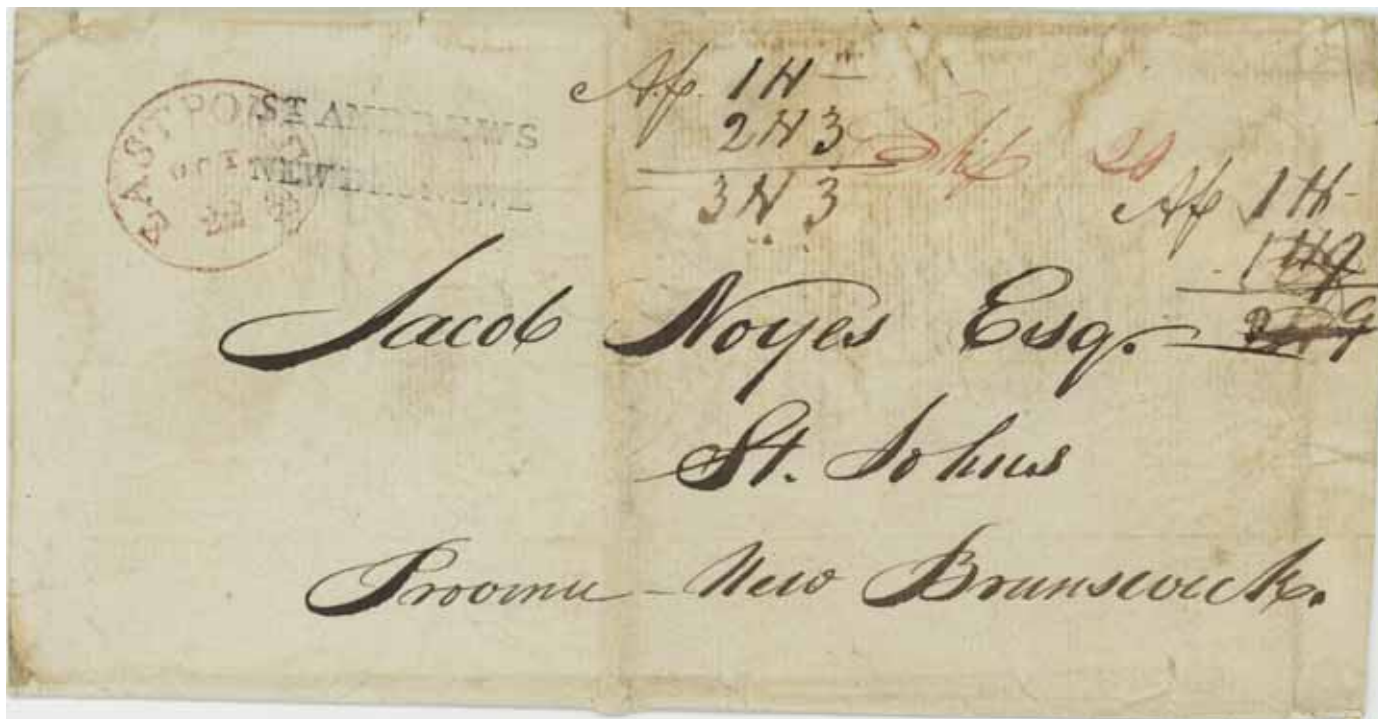 EASTPO
OCT
22
ST ANDREWS
NEWBRUNSWE
1 N
2 N 3
3 N 3
Ship 20
1 N
Jacob Noyes Esq.
St. Johns
Province - New Brunswick.